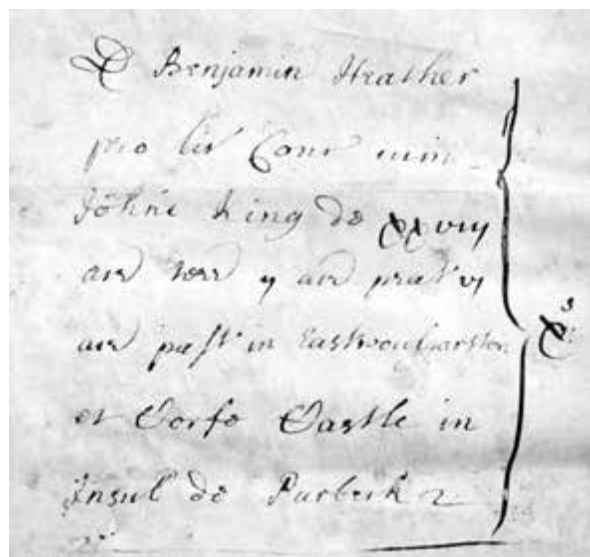 D Benjamin Heather
pro lić Conć cum
Johne King de xxviij
acr terr ij acr prat vj
acr past in Eastwoulbarston
et Corfe Castle in
Insul de Purbeck
xˢ